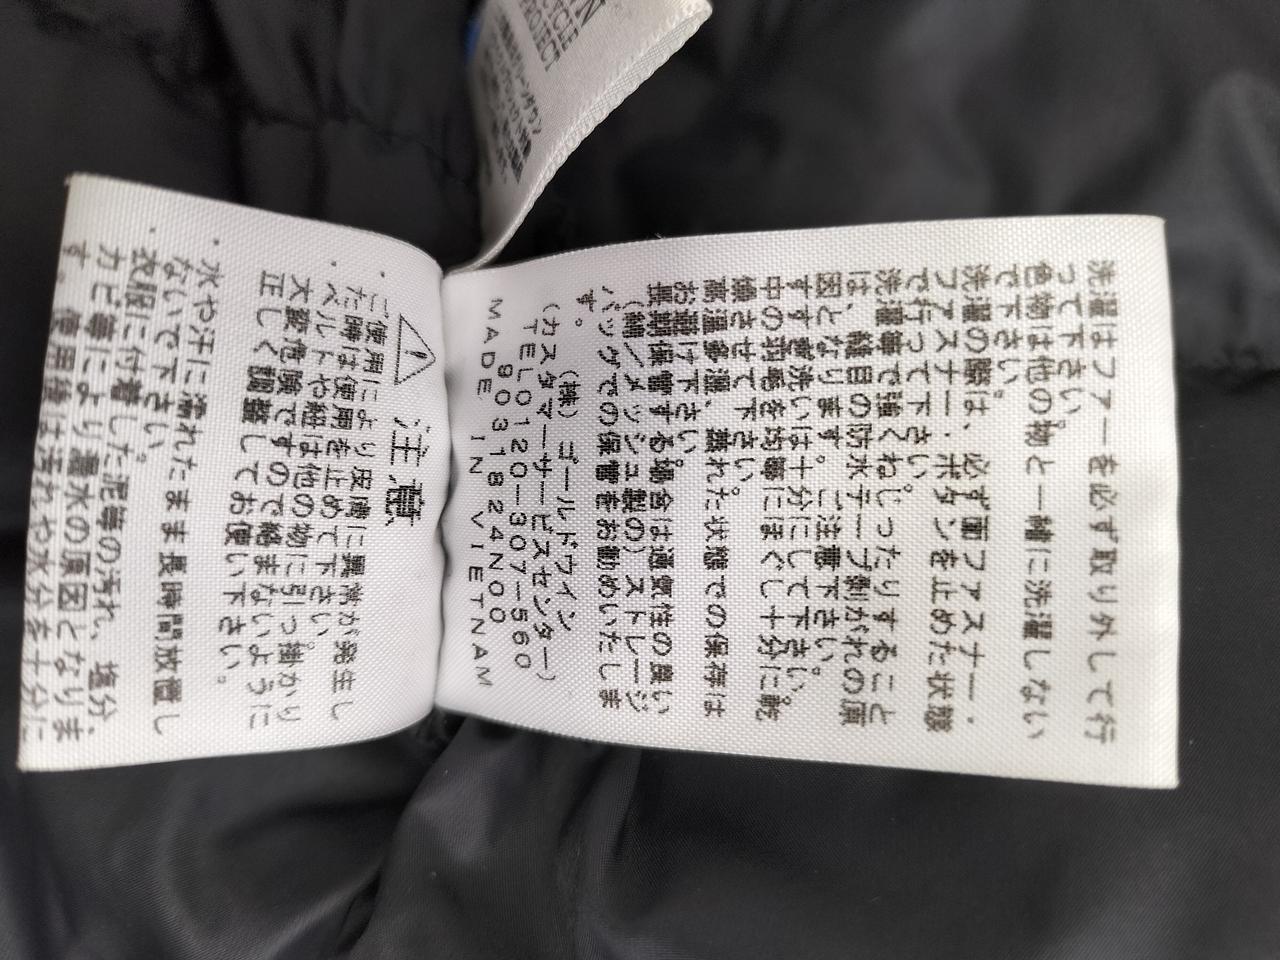 洗濯はファーを必ず取り外して行
って下さい。
色物は他の物と一緒に洗濯しない
で下さい。
洗濯の際は、必ず面ファスナー・
ファスナー・ボタンを止めた状態
で行って下さい。
洗濯機で強くねじったりすること
は、縫目の防水テープ剥がれの原
因となります。ご注意下さい。
すすぎ洗いは十分にして下さい。
中の羽毛を均等にほぐし十分に乾
燥させて下さい。
高温多湿、濡れた状態での保存は
お避け下さい。
長期保管する場合は通気性の良い
(綿/メッシュ製の)ストレージ
バッグでの保管をお勧めいたしま
す。
(株)ゴールドウイン
(カスタマーサービスセンター)
TEL0120-307-560
9031824N00
MADE IN VIETNAM
⚠注意
・ご使用により皮膚に異常が発生し
た時は使用を止めて下さい。
・ベルトや紐は他の物に引っ掛かり
大変危険ですので絡まないように
正しく調整してお使い下さい。
・水や汗に濡れたまま長時間放置し
ないで下さい。
・衣服に付着した泥等の汚れ、塩分、
カビ等により漏水の原因となりま
す。使用後は汚れや水分を十分に
PROJECT